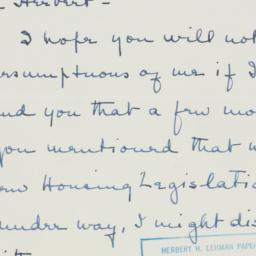 Herbert-
I hope you will not
esumptuous of me if I
nd you that a few mo
you mentioned that w
ew Housing Legislatio
under way, I might dis
it
HERBERT H. LEHMAN PAPE